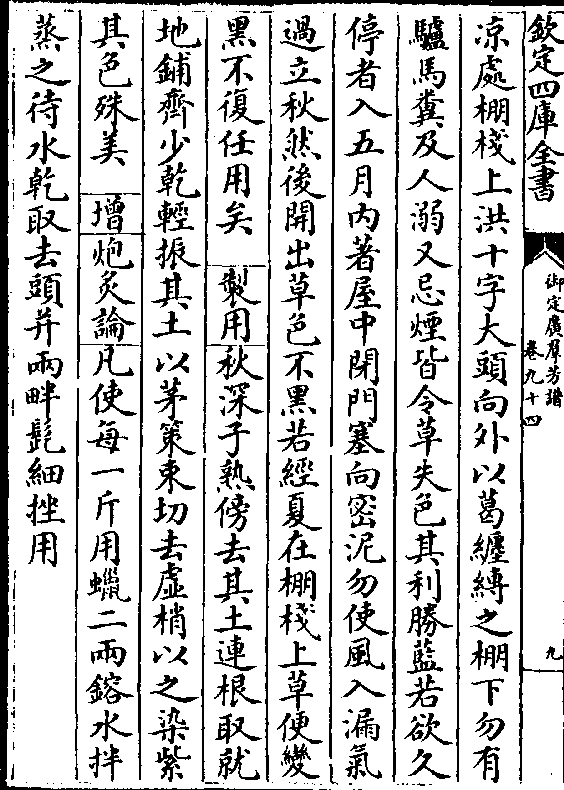 欽定四庫全書
御定廣羣芳譜
卷九十四
九
凉處棚棧上洪十字大頭向外以葛纏縛之棚下勿有
驢馬糞及人溺又忌煙皆令草失色其利勝藍若欲久
停者入五月内著屋中閉門塞向密泥勿使風入漏氣
過立秋然後開出草色不黑若經夏在棚棧上草便變
黑不復任用矣 製用秋深子熟傍去其土連根取就
地鋪齊少乾輕振其土以茅策束切去虚梢以之染紫
其色殊美 增炮炙論凡使每一斤用蠟二兩鎔水拌
蒸之待水乾取去頭并兩畔髭細挫用